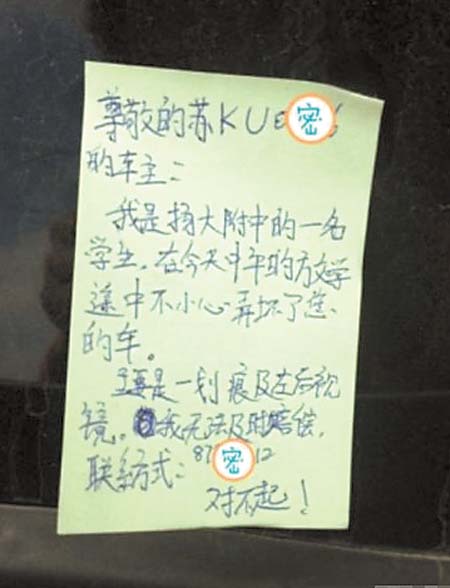 尊敬的苏KU密
的车主：
我是扬大附中的一名
学生，在今天中午的放学
途中不小心弄坏了您
的车。
主要是一划痕及左后视
镜。我无法及时赔偿，
联系方式：87密12
对不起！